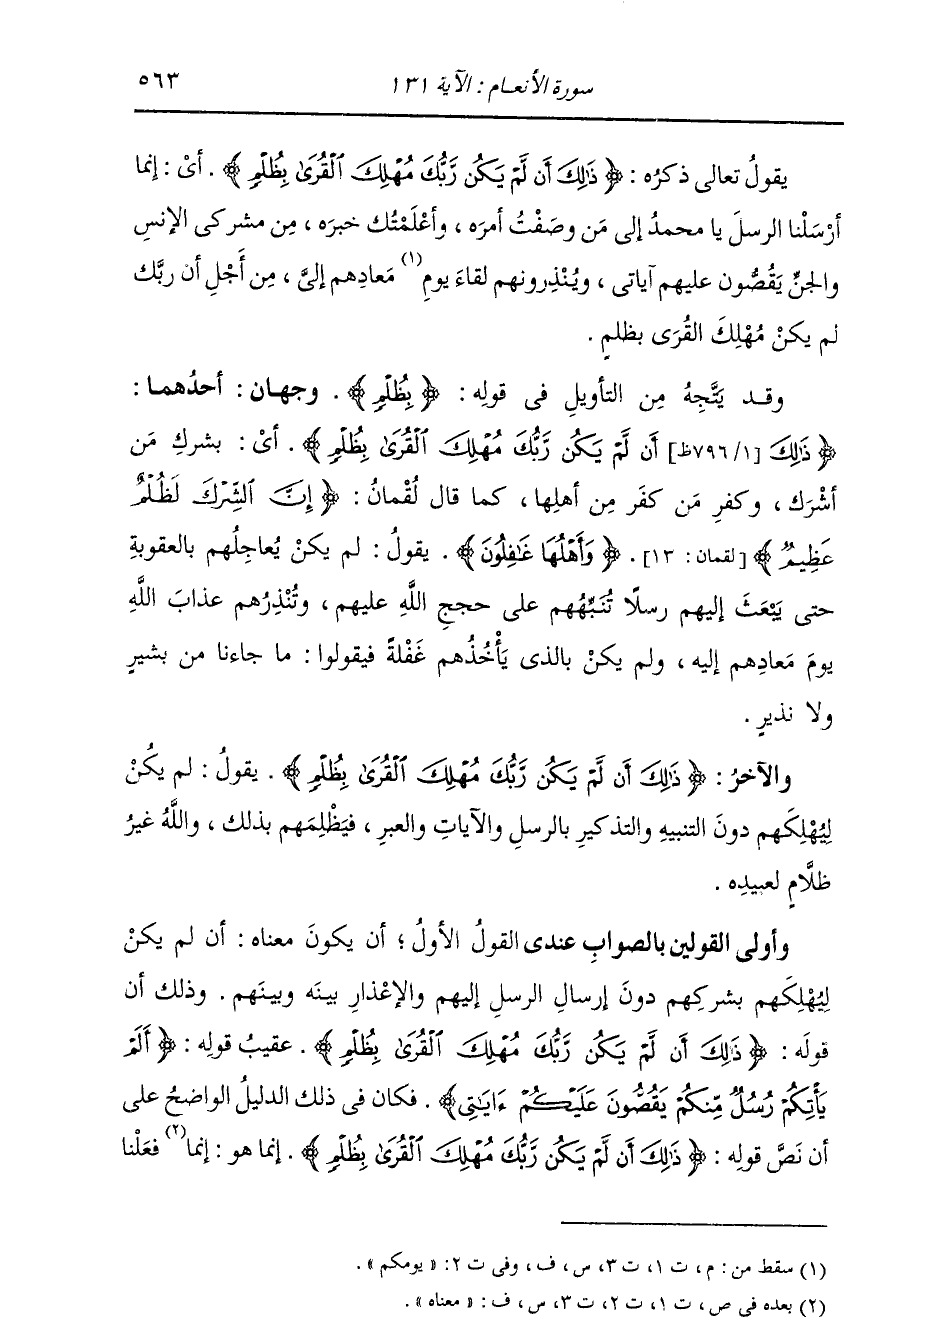 سورة الأنعام : الآية ١٣١
٥٦٣
يقولُ تعالى ذكرُه : ﴿ ذَٰلِكَ أَن لَّمْ يَكُن رَّبُّكَ مُهْلِكَ ٱلْقُرَىٰ بِظُلْمٍ ﴾ . أىْ : إنما
أرْسَلْنا الرسلَ يا محمدُ إلى مَن وصَفْتُ أمرَه ، وأَعْلَمْتُك خبرَه ، مِن مشركى الإنسِ
والجنِّ يَقُصُّون عليهم آياتى ، ويُنْذِرونهم لقاءَ يومِ(١) مَعادِهم إلىَّ ، مِن أَجْلِ أن ربَّك
لم يكنْ مُهْلِكَ القُرَى بظلمٍ .
وقد يَتَّجِهُ مِن التأويلِ فى قولِه : ﴿ بِظُلْمٍ ﴾ . وجهان : أحدُهما :
﴿ ذَٰلِكَ [٧٩٦/١ظ] أَن لَّمْ يَكُن رَّبُّكَ مُهْلِكَ ٱلْقُرَىٰ بِظُلْمٍ ﴾ . أىْ : بشركِ مَن
أشْرَك ، وكفرِ مَن كفَر مِن أهلِها ، كما قال لُقْمانُ : ﴿ إِنَّ ٱلشِّرْكَ لَظُلْمٌ
عَظِيمٌ ﴾ [لقمان : ١٣] . ﴿ وَأَهْلُهَا غَٰفِلُونَ ﴾ . يقولُ : لم يكنْ يُعاجِلُهم بالعقوبةِ
حتى يَبْعَثَ إليهم رسلًا تُنَبِّهُهم على حججِ اللَّهِ عليهم ، وتُنْذِرُهم عذابَ اللَّهِ
يومَ مَعادِهم إليه ، ولم يكنْ بالذى يَأْخُذُهم غَفْلةً فيقولوا : ما جاءنا من بشيرٍ
ولا نذيرٍ .
والآخرُ : ﴿ ذَٰلِكَ أَن لَّمْ يَكُن رَّبُّكَ مُهْلِكَ ٱلْقُرَىٰ بِظُلْمٍ ﴾ . يقولُ : لم يكُنْ
لِيُهْلِكَهم دونَ التنبيهِ والتذكيرِ بالرسلِ والآياتِ والعبرِ ، فيَظْلِمَهم بذلك ، واللَّهُ غيرُ
ظلَّامٍ لعبيدِه .
وأولى القولين بالصوابِ عندى القولُ الأولُ ؛ أن يكونَ معناه : أن لم يكنْ
لِيُهْلِكَهم بشركِهم دونَ إرسالِ الرسلِ إليهم والإعْذارِ بينَه وبينَهم . وذلك أن
قولَه : ﴿ ذَٰلِكَ أَن لَّمْ يَكُن رَّبُّكَ مُهْلِكَ ٱلْقُرَىٰ بِظُلْمٍ ﴾ . عقيبُ قولِه : ﴿ أَلَمْ
يَأْتِكُمْ رُسُلٌ مِّنكُمْ يَقُصُّونَ عَلَيْكُمْ ءَايَٰتِى ﴾ . فكان فى ذلك الدليلُ الواضحُ على
أن نَصَّ قولِه : ﴿ ذَٰلِكَ أَن لَّمْ يَكُن رَّبُّكَ مُهْلِكَ ٱلْقُرَىٰ بِظُلْمٍ ﴾ . إنما هو : إنما(٢) فعَلْنا
(١) سقط من : م ، ت ١، ت ٣، س ، ف ، وفى ت ٢: « يومكم » .
(٢) بعده فى ص ، ت ١، ت ٢، ت ٣، س ، ف : « معناه » .